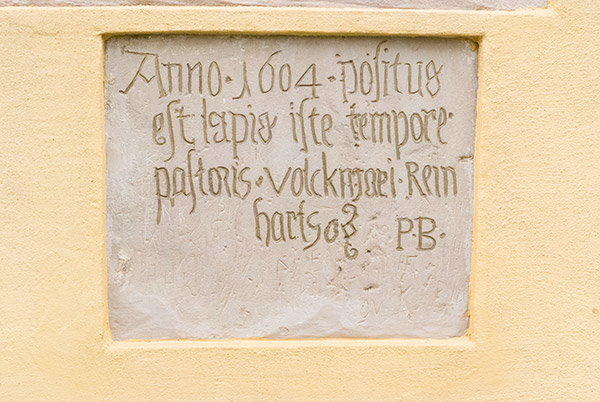 Anno · 1604 · positus
est lapis iste tempore ·
pastoris · Volckmaei · Rein
hartso P · B ·